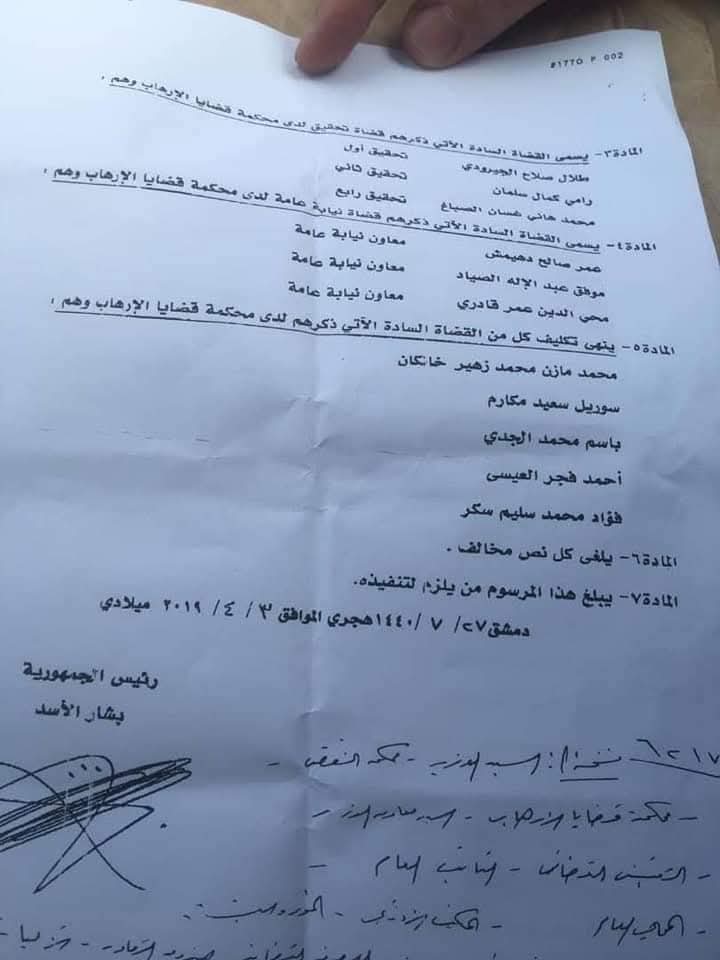 #1770 P 002
المادة٣- يسمى القضاة السادة الآتي ذكرهم قضاة تحقيق لدى محكمة قضايا الإرهاب وهم :
طلال صلاح الجيرودي تحقيق أول
رامي كمال سلمان تحقيق ثاني
محمد هاني غسان الصباغ تحقيق رابع
المادة٤- يسمى القضاة السادة الآتي ذكرهم قضاة نيابة عامة لدى محكمة قضايا الإرهاب وهم :
عمر صالح دهيمش معاون نيابة عامة
موفق عبد الإله الصياد معاون نيابة عامة
محي الدين عمر قادري معاون نيابة عامة
المادة٥- ينهى تكليف كل من القضاة السادة الآتي ذكرهم لدى محكمة قضايا الإرهاب وهم :
محمد مازن محمد زهير خانكان
سوريل سعيد مكارم
باسم محمد الجدي
أحمد فجر العيسى
فؤاد محمد سليم سكر
المادة٦- يلغى كل نص مخالف .
المادة٧- يبلغ هذا المرسوم من يلزم لتنفيذه.
دمشق٢٧/ ٧ /١٤٤٠هجري الموافق ٣ / ٤ / ٢٠١٩ ميلادي
رئيس الجمهورية
بشار الأسد
٦٢١٧ السيد الوزير - محكمة النقض -
محكمة قضايا الإرهاب - السيد معاون الوزير -
التفتيش القضائي - النائب العام -
المحامي العام -